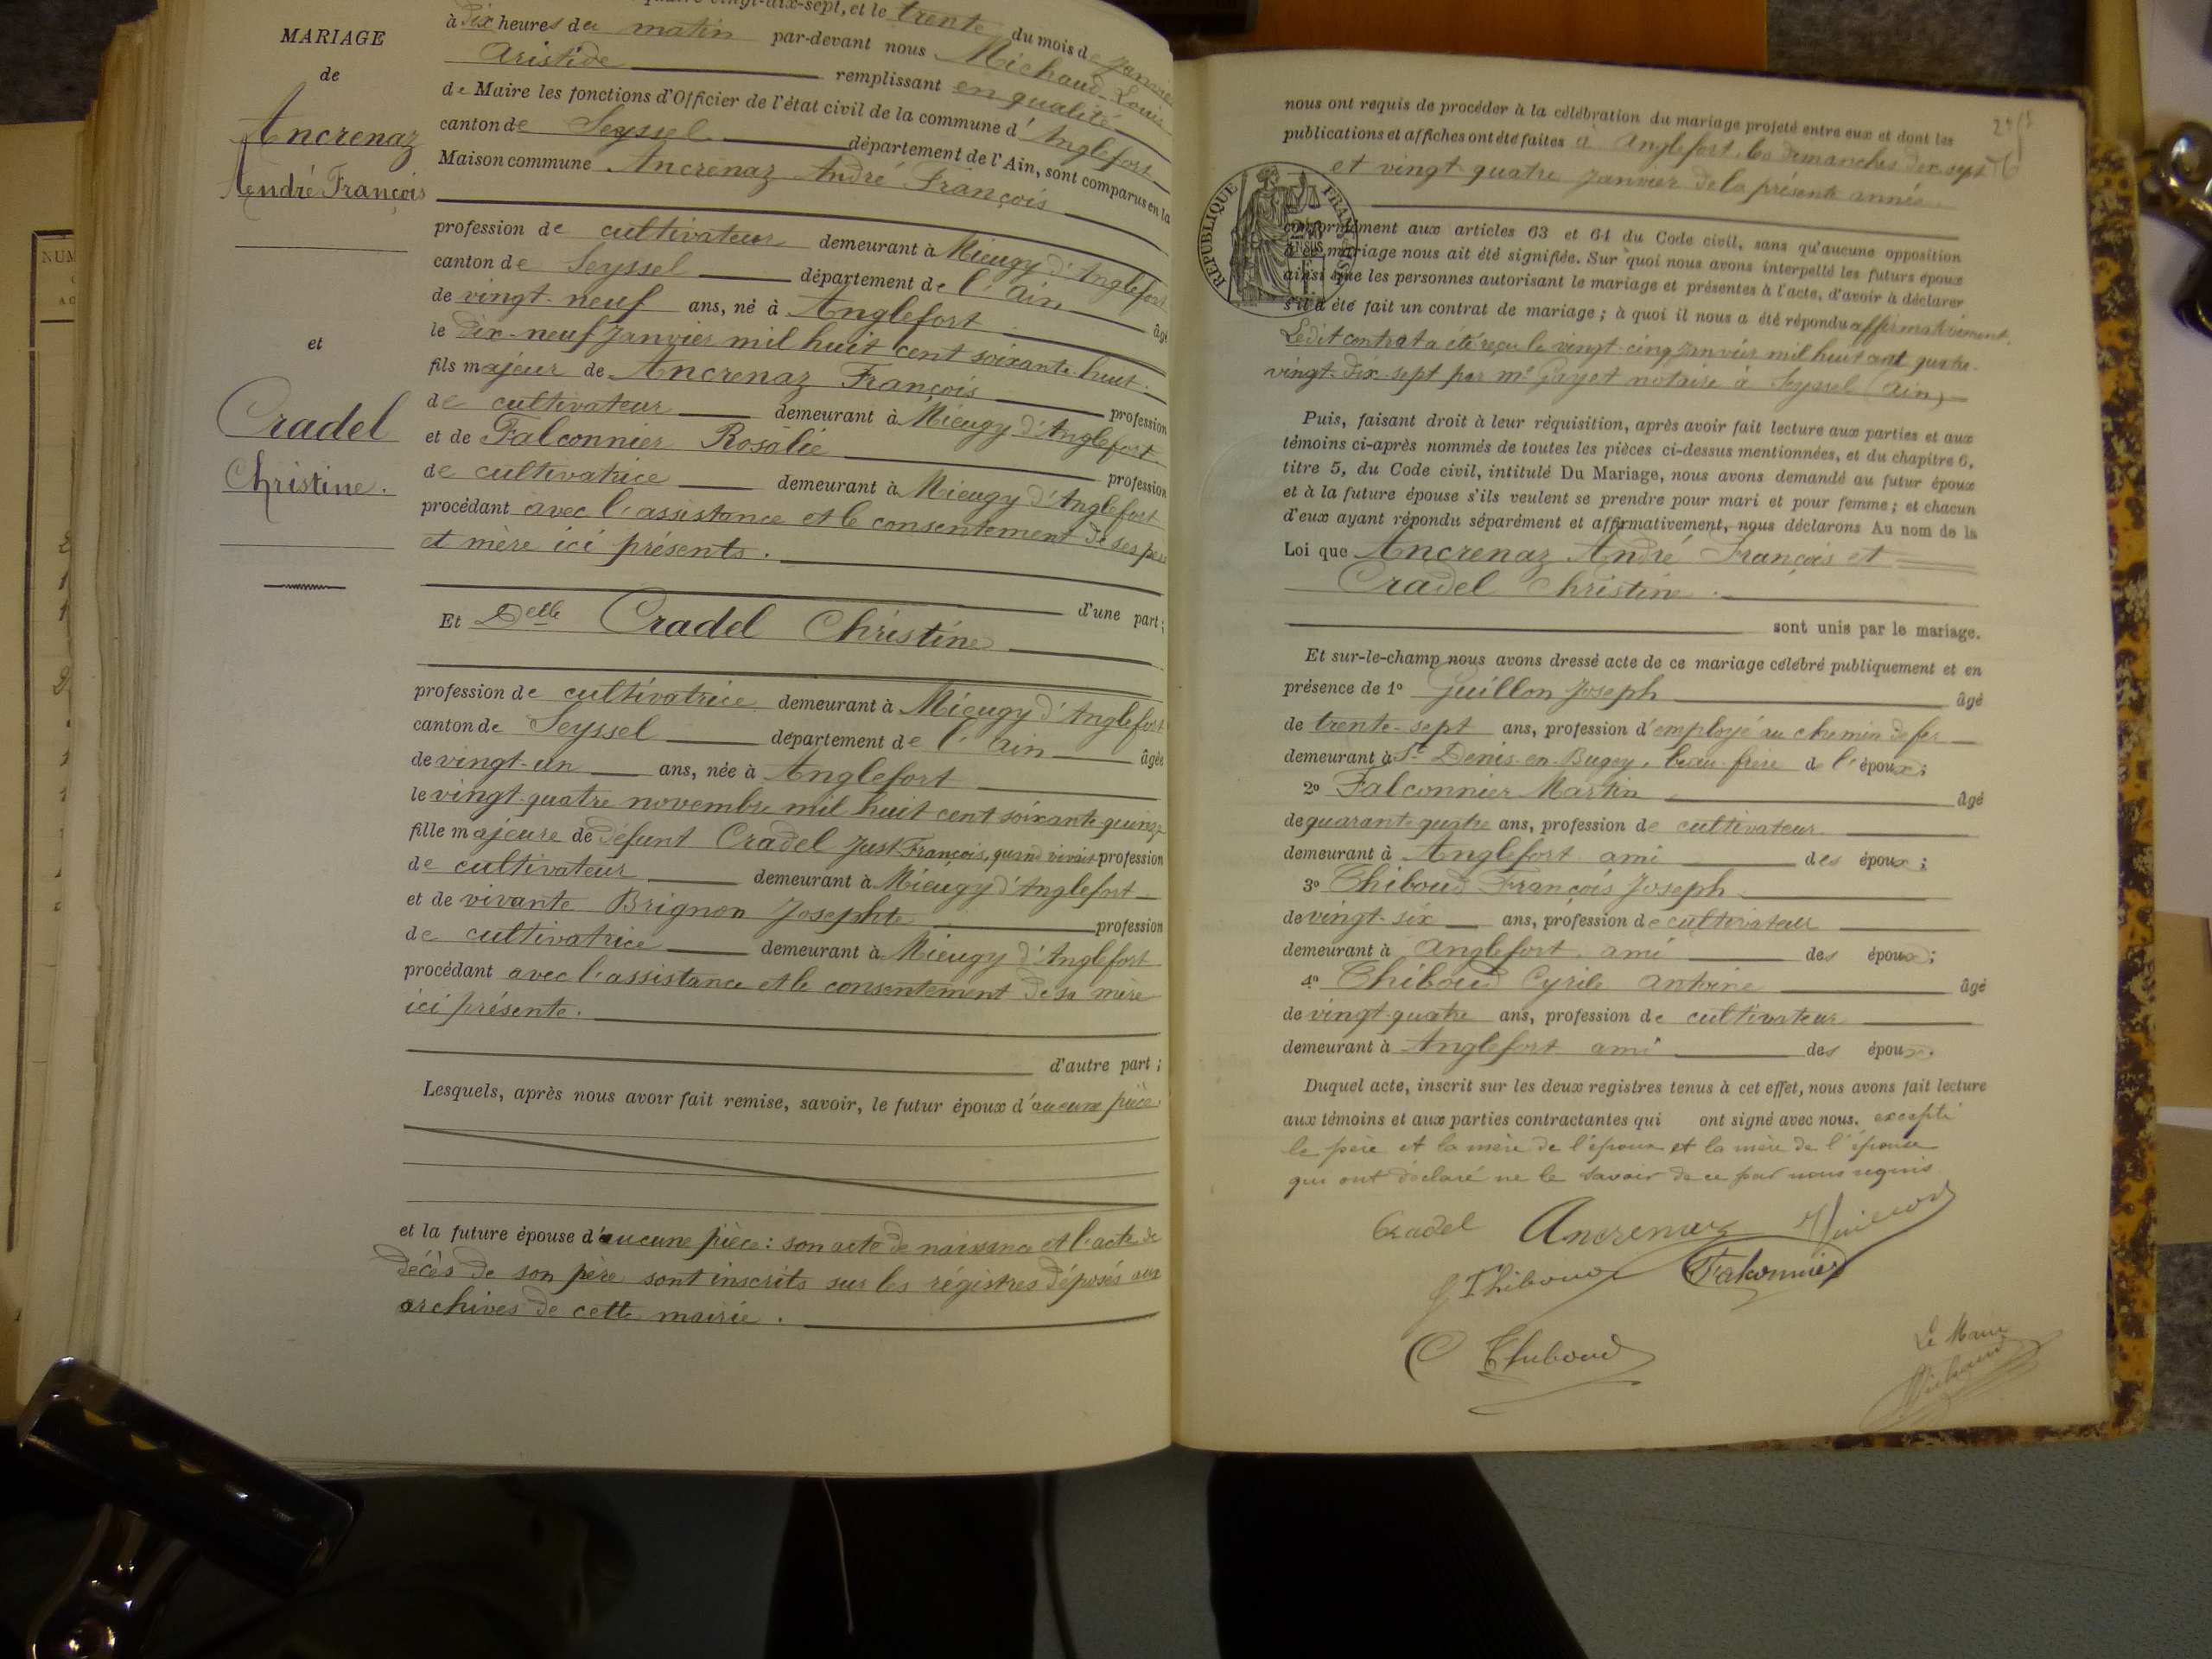 MARIAGE
de
Ancrenaz
André François
et
Cradel
Christine.
quatre-vingt-dix-sept, et le trente du mois de Janvier
à Dix heures du matin par-devant nous Michaud Louis
Aristide remplissant en qualité
de Maire les fonctions d'Officier de l'état civil de la commune d'Anglefort
canton de Seyssel département de l'Ain, sont comparus en la
Maison commune Ancrenaz André François
profession de cultivateur demeurant à Mieugy d'Anglefort
canton de Seyssel département de l'Ain âgé
de vingt-neuf ans, né à Anglefort
le Dix-neuf Janvier mil huit cent soixante-huit.
fils majeur de Ancrenaz François profession
de cultivateur demeurant à Mieugy d'Anglefort
et de Falconnier Rosalie profession
de cultivatrice demeurant à Mieugy d'Anglefort
procédant avec l'assistance et le consentement de ses père
et mère ici présents.
d'une part;
Et Delle Cradel Christine
profession de cultivatrice demeurant à Mieugy d'Anglefort
canton de Seyssel département de l'Ain âgée
de vingt-un ans, née à Anglefort
le vingt-quatre novembre mil huit cent soixante-quinze
fille majeure de défunt Cradel Just François, quand vivait profession
de cultivateur demeurant à Mieugy d'Anglefort
et de vivante Brignon Josephte profession
de cultivatrice demeurant à Mieugy d'Anglefort
procédant avec l'assistance et le consentement de sa mère
ici présente.
d'autre part;
Lesquels, après nous avoir fait remise, savoir, le futur époux d'aucune pièce.
et la future épouse d'aucune pièce: son acte de naissance et l'acte de
décès de son père sont inscrits sur les régistres déposés aux
archives de cette mairie.
nous ont requis de procéder à la célébration du mariage projeté entre eux et dont les
publications et affiches ont été faites à Anglefort, les dimanches dix-sept
et vingt-quatre Janvier de la présente année
REPUBLIQUE FRANÇAISE
conformément aux articles 63 et 64 du Code civil, sans qu'aucune opposition
à ce mariage nous ait été signifiée. Sur quoi nous avons interpellé les futurs époux
ainsi que les personnes autorisant le mariage et présentes à l'acte, d'avoir à déclarer
s'il a été fait un contrat de mariage; à quoi il nous a été répondu affirmativement.
Ledit contrat a été reçu le vingt-cinq Janvier mil huit cent quatre-
vingt-Dix-sept par Me Gayet notaire à Seyssel (Ain)
Puis, faisant droit à leur réquisition, après avoir fait lecture aux parties et aux
témoins ci-après nommés de toutes les pièces ci-dessus mentionnées, et du chapitre 6,
titre 5, du Code civil, intitulé Du Mariage, nous avons demandé au futur époux
et à la future épouse s'ils veulent se prendre pour mari et pour femme; et chacun
d'eux ayant répondu séparément et affirmativement, nous déclarons Au nom de la
Loi que Ancrenaz André François et
Cradel Christine.
sont unis par le mariage.
Et sur-le-champ nous avons dressé acte de ce mariage célébré publiquement et en
présence de 1º Guillon Joseph âgé
de trente-sept ans, profession d'employé au chemin de fer
demeurant à St Denis-en-Bugey, beau-frère de l'époux;
2º Falconnier Martin âgé
de quarante-quatre ans, profession de cultivateur
demeurant à Anglefort ami des époux;
3º Thiboud François Joseph
de vingt-six ans, profession de cultivateur
demeurant à Anglefort, ami des époux;
4º Thiboud Cyrile Antoine âgé
de vingt-quatre ans, profession de cultivateur
demeurant à Anglefort ami des époux.
Duquel acte, inscrit sur les deux registres tenus à cet effet, nous avons fait lecture
aux témoins et aux parties contractantes qui ont signé avec nous. excepté
le père et la mère de l'époux et la mère de l'épouse
qui ont déclaré ne le savoir de ce par nous requis
Cradel Ancrenaz Guillon
J Thiboud Falconnier
C Thiboud
Le Maire
Michaud